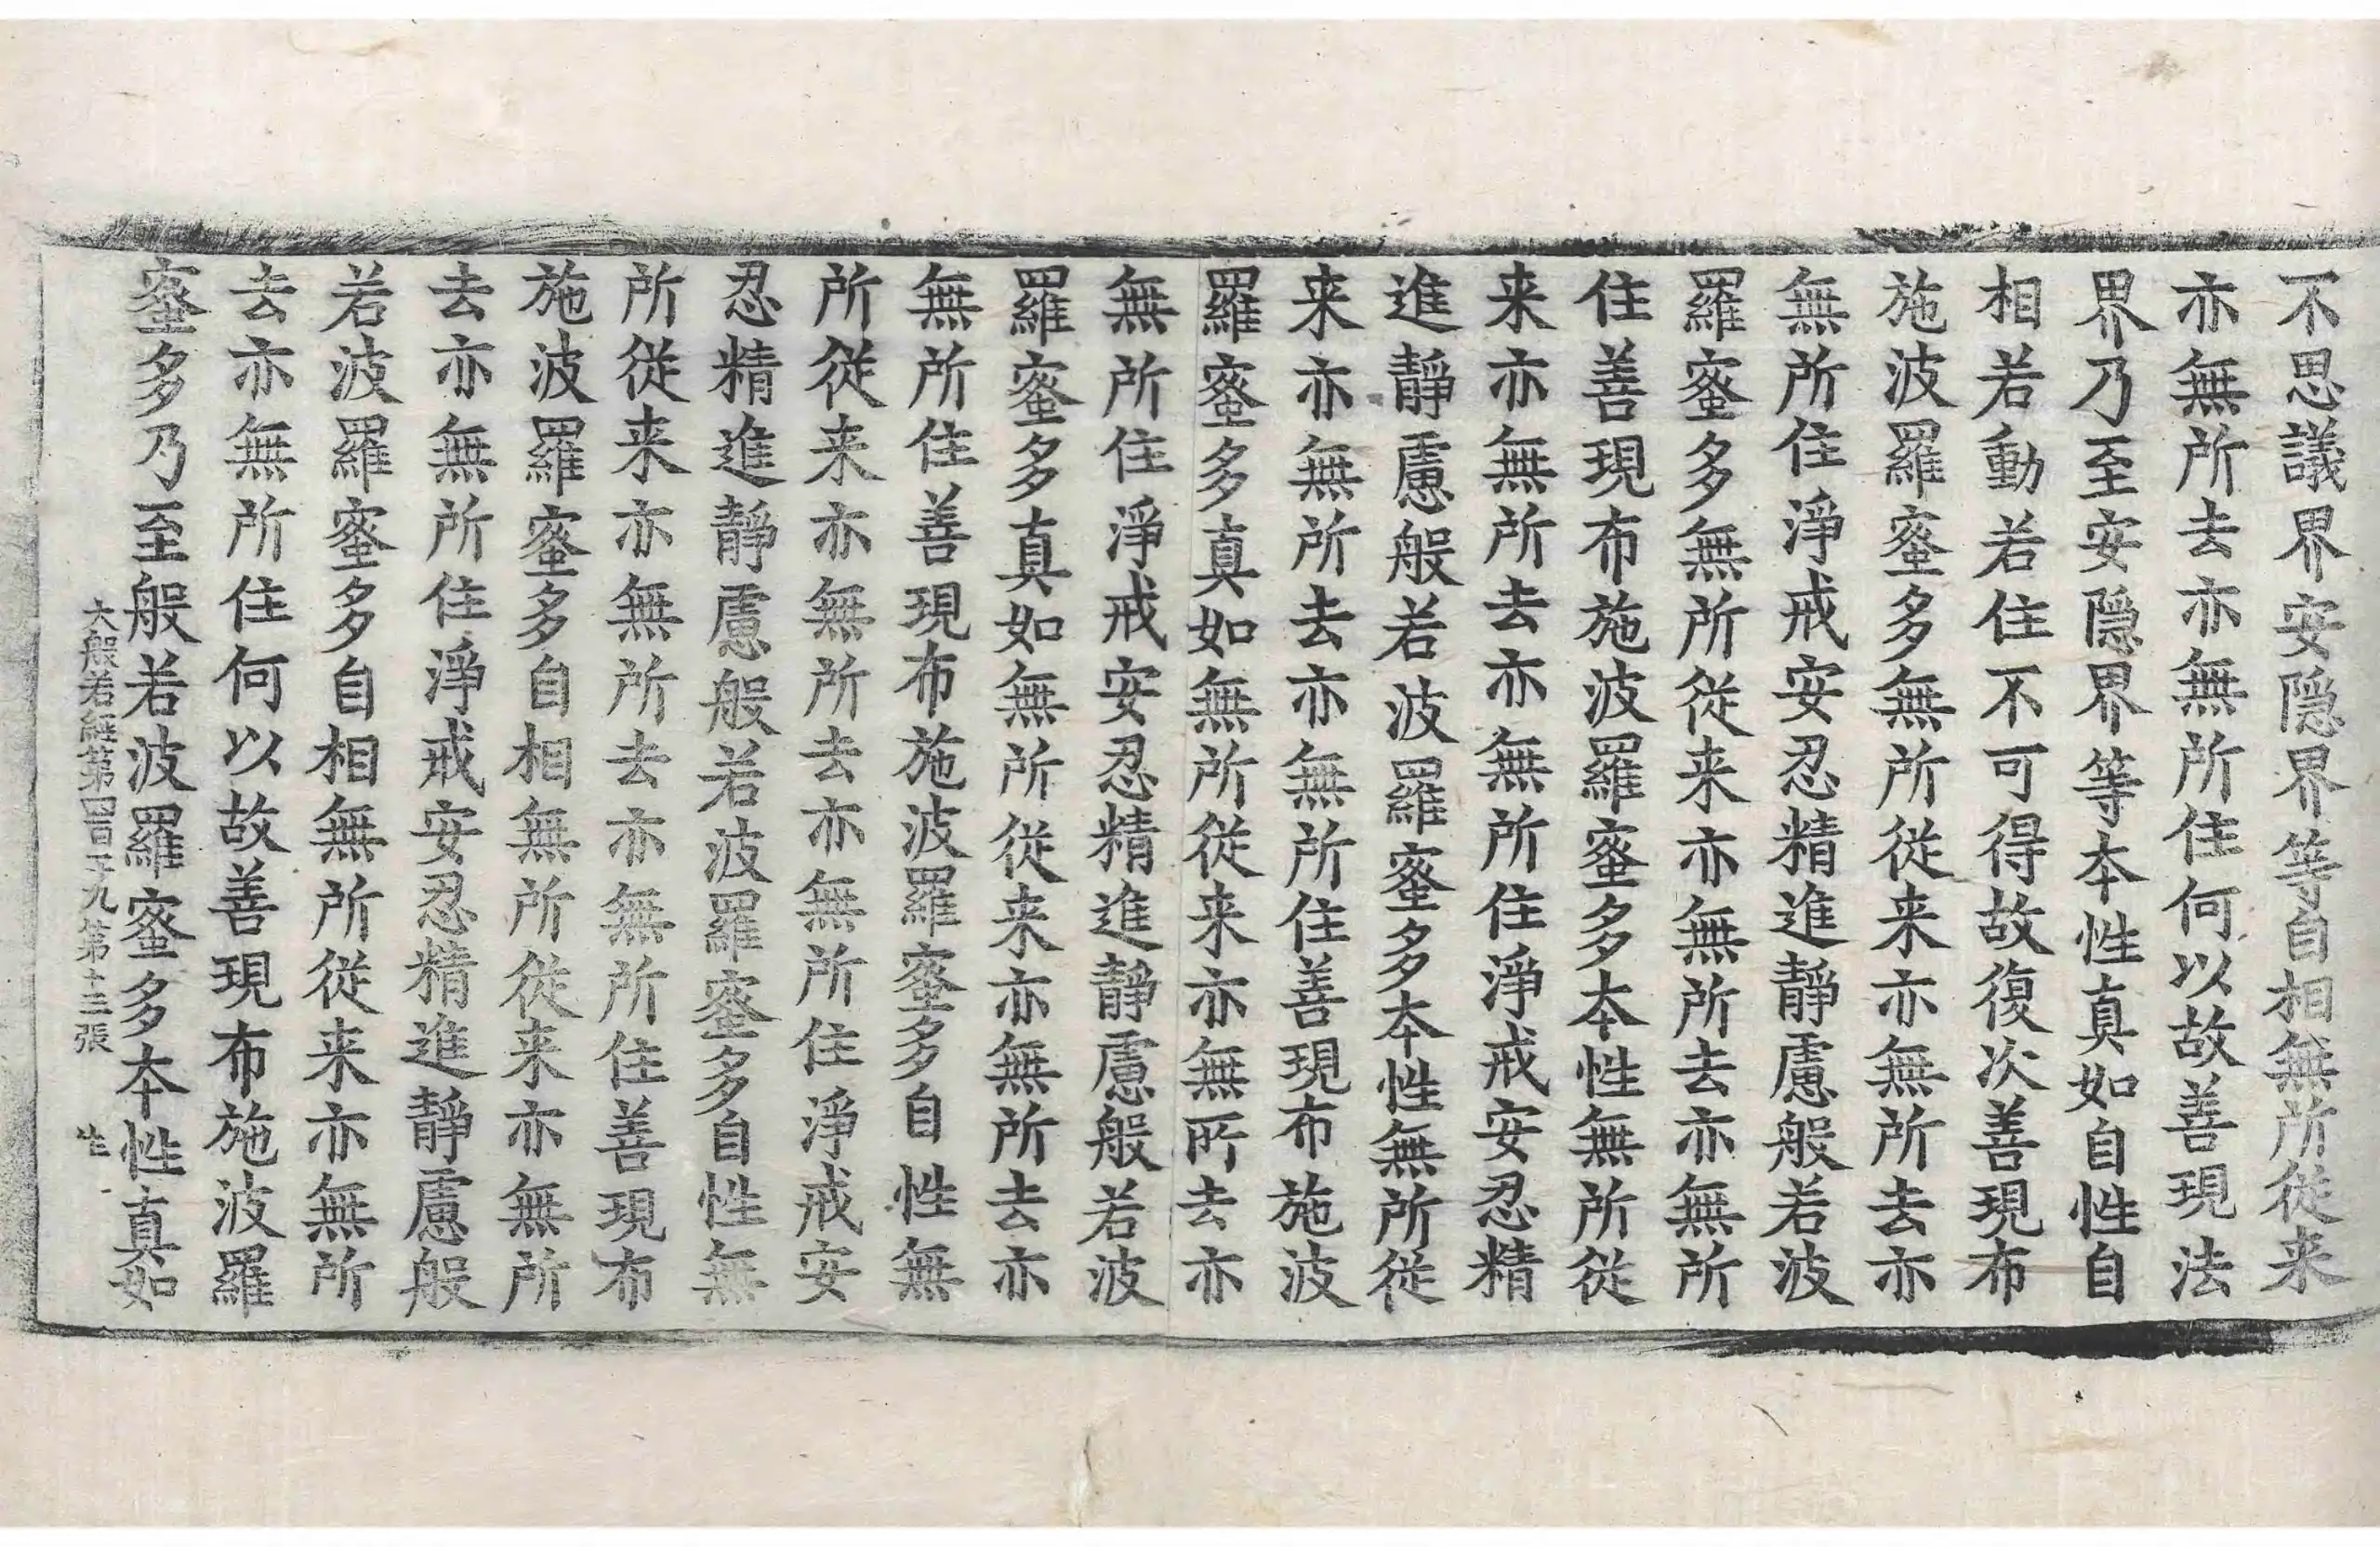 不思議界安隱界等自相無所從来
亦無所去亦無所住何以故善現法
界乃至安隱界等夲性真如自性自
相若動若住不可得故復次善現布
施波羅蜜多無所從来亦無所去亦
無所住淨戒安忍精進靜慮般若波
羅蜜多無所從来亦無所去亦無所
住善現布施波羅蜜多夲性無所從
来亦無所去亦無所住淨戒安忍精
進靜慮般若波羅蜜多夲性無所從
来亦無所去亦無所住善現布施波
羅蜜多真如無所從来亦無所去亦
無所住淨戒安忍精進靜慮般若波
羅蜜多真如無所從来亦無所去亦
無所住善現布施波羅蜜多自性無
所從来亦無所去亦無所住淨戒安
忍精進靜慮般若波羅蜜多自性無
所從来亦無所去亦無所住善現布
施波羅蜜多自相無所從来亦無所
去亦無所住淨戒安忍精進靜慮般
若波羅蜜多自相無所從来亦無所
去亦無所住何以故善現布施波羅
蜜多乃至般若波羅蜜多夲性真如
大般若經第四百十九第十三張